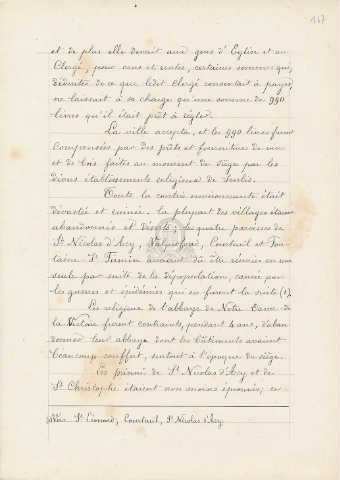 147
et de plus elle devait aux gens d'Eglise et au
Clergé, pour cens et rentes, certaines sommes qui,
déduites de ce que ledit Clergé consentait à payer,
ne laissait à sa charge qu'une somme de 990
livres qu'il était prêt à régler.
La ville accepta, et les 990 livres furent
compensées par des prêts et fourniture de vin
et de bois faites au moment du siège par les
divers établissements religieux de Senlis.
Toute la contrée environnante était
dévastée et ruinée. la plupart des villages étaient
abandonnés et déserts; les quatre paroisses de
St Nicolas d'Acy, Valprofond, Courteuil et Fon-
taine St Firmin avaient dû être réunies en une
seule par suite de la dépopulation, causée par
les guerres et épidémies qui en furent la suite (1).
Les religieux de l'abbaye de Notre Dame de
la Victoire furent contraints, pendant 4 ans, d'aban-
donner leur abbaye dont les bâtiments avaient
beaucoup souffert, surtout à l'époque du siège.
Les prieurés de St Nicolas d'Acy et de
St Christophe étaient non moins éprouvés; en
Voir St Léonard, Courteuil, St Nicolas d'Acy